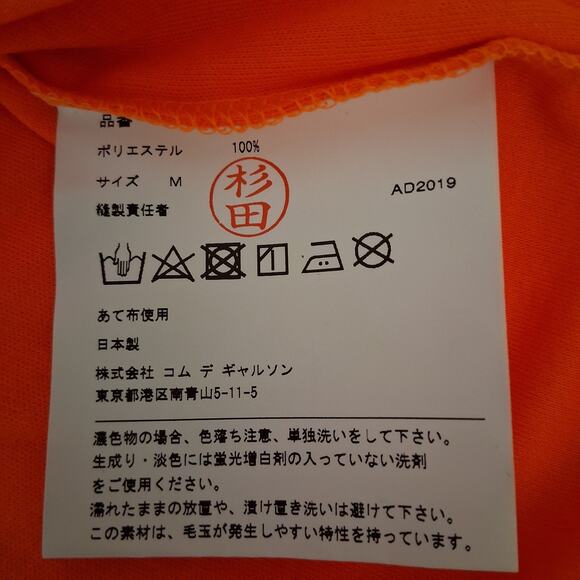 品番
ポリエステル 100%
サイズ M
AD2019
縫製責任者
杉田
あて布使用
日本製
株式会社 コム デ ギャルソン
東京都港区南青山5-11-5
濃色物の場合、色落ち注意、単独洗いをして下さい。
生成り・淡色には蛍光増白剤の入っていない洗剤
をご使用ください。
濡れたままの放置や、漬け置き洗いは避けて下さい。
この素材は、毛玉が発生しやすい特性を持っています。